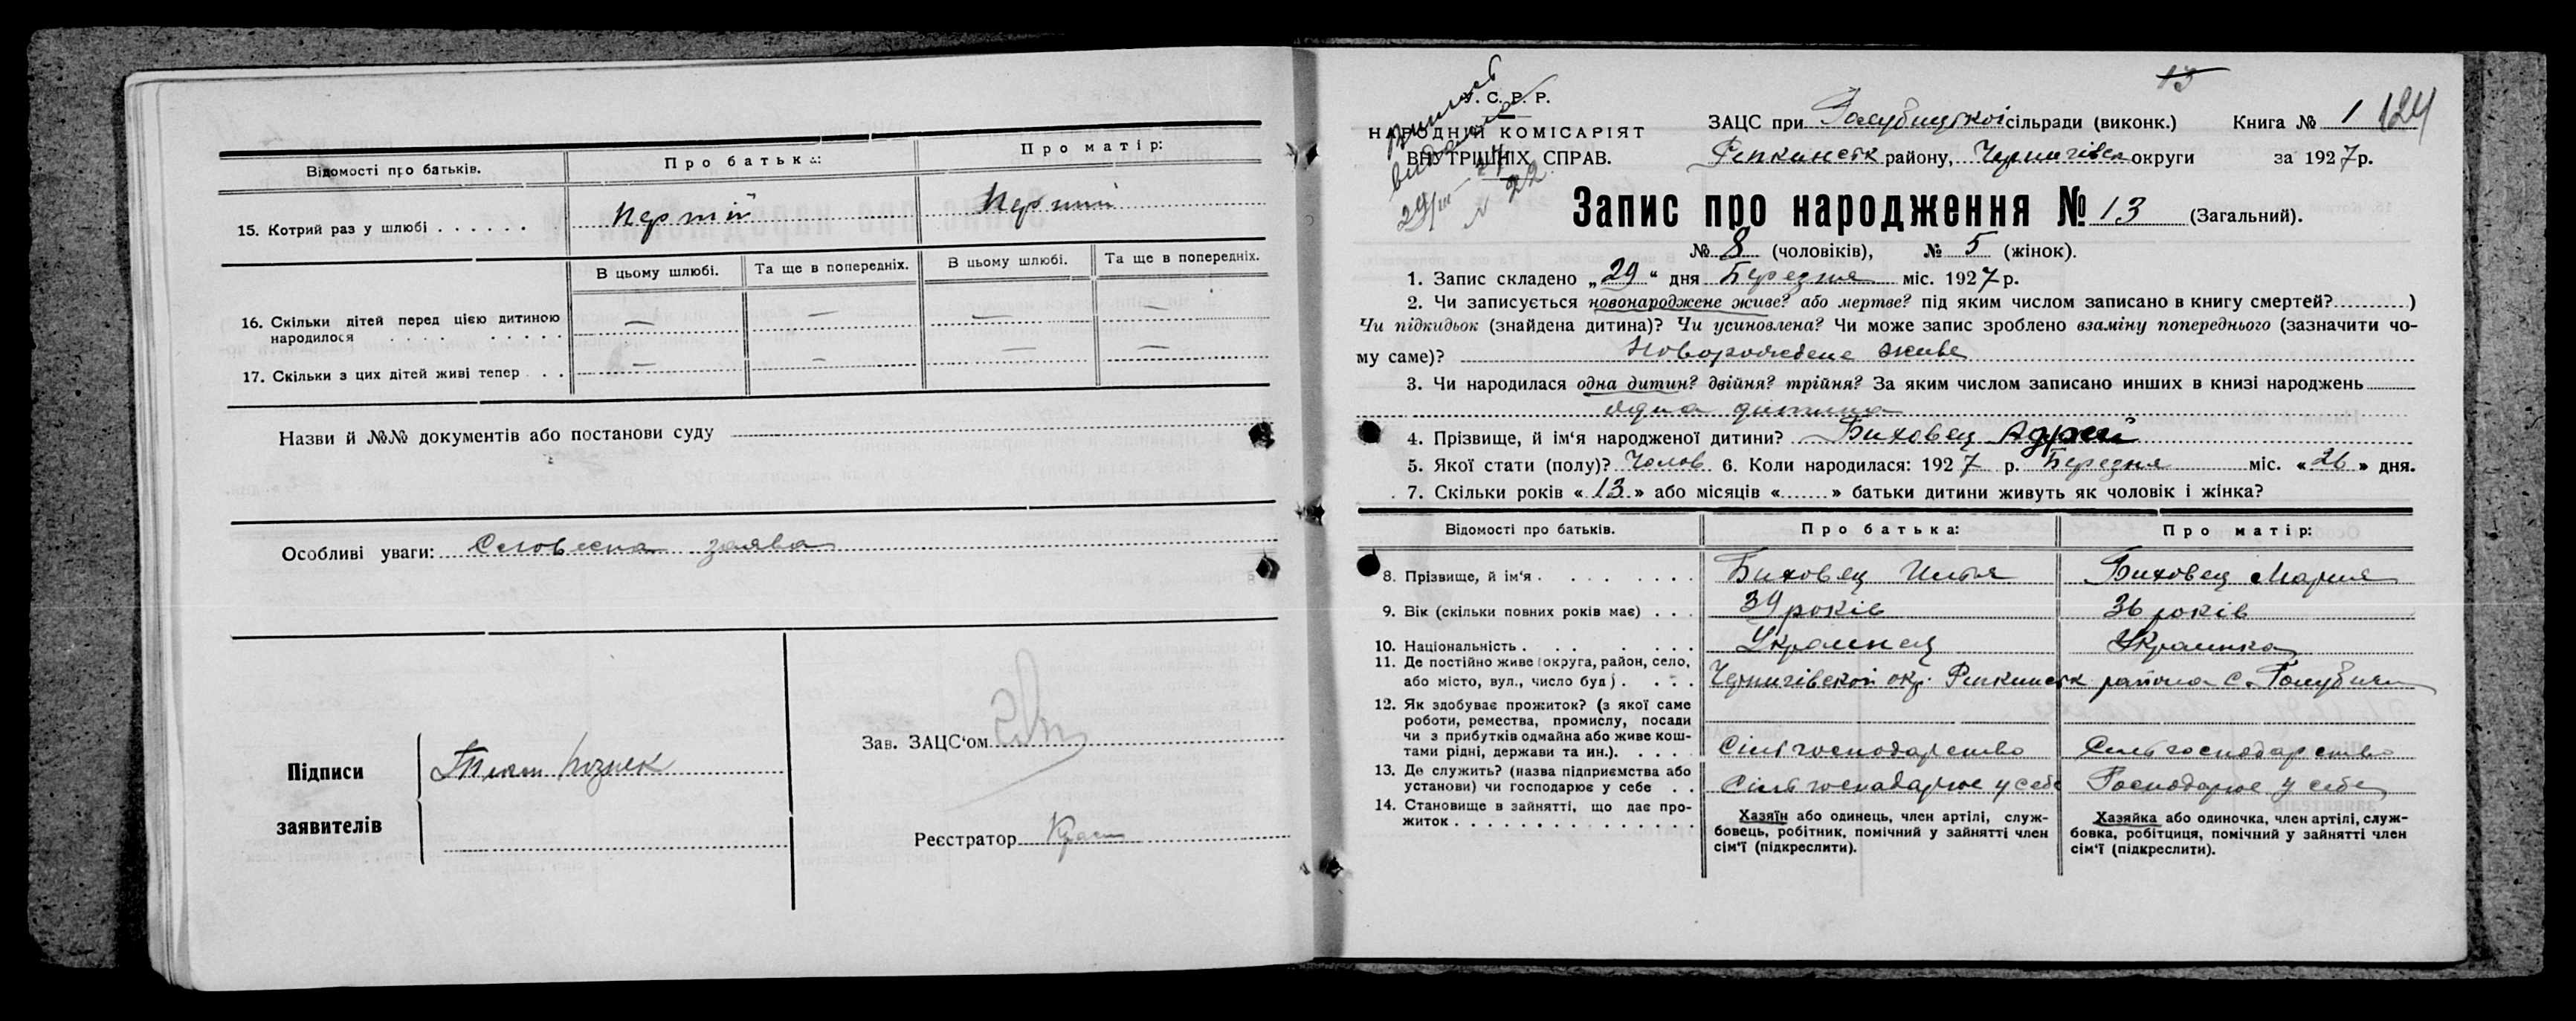 Відомості про батьків. Про батька: Про матір:
15. Котрий раз у шлюбі . . . . . . Перший Перший
В цьому шлюбі. Та ще в попередніх. В цьому шлюбі. Та ще в попередніх.
16. Скільки дітей перед цією дитиною
народилося . . . . . . . . . — — — —
17. Скільки з цих дітей живі тепер . . . — — — —
Назви й №№ документів або постанови суду
Особливі уваги: Словесна заява
Зав. ЗАЦС‘ом
Підписи
заявителів
Реєстратор
13
У. С. Р. Р.
НАРОДНИЙ КОМІСАРІЯТ
ВНУТРІШНІХ СПРАВ.
29/III 27
N 22
ЗАЦС при Голубицької сільради (виконк.) Книга № 1 124
Репкинськ району, Чернигівськ округи за 1927 р.
Запис про народження № 13 (Загальний).
№ 8 (чоловіків), № 5 (жінок).
1. Запис складено „29“ дня Березня міс. 1927 р.
2. Чи записується новонароджене живе? або мертве? під яким числом записано в книгу смертей?..........)
Чи підкидьок (знайдена дитина)? Чи усиновлена? Чи може запис зроблено взаміну попереднього (зазначити чо-
му саме)? Новорожедене живе
3. Чи народилася одна дитин? двійня? трійня? За яким числом записано инших в книзі народжень
одна дитина
4. Прізвище, й ім‘я народженої дитини? Биховец
5. Якої стати (полу)? Чолов 6. Коли народилася: 1927 р. Березня міс. «26» дня.
7. Скільки років «13» або місяців «......» батьки дитини живуть як чоловік і жінка?
Відомості про батьків. Про батька: Про матір:
8. Прізвище, й ім‘я . . . . . . . . Биховец Илья Биховец Мария
9. Вік (скільки повних років має) . . . 39 років 36 років
10. Національність . . . . . . . Украинец Украинка
11. Де постійно живе (округа, район, село,
або місто, вул., число буд). . . . . Чернигівской окр. Репкинськ района с. Голубичи
12. Як здобуває прожиток? (з якої саме
роботи, ремества, промислу, посади
чи з прибутків одмайна або живе кош-
тами рідні, держави та ин.). . . . . Сільгосподарство Сельгосподарство
13. Де служить? (назва підприємства або
установи) чи господарює у себе . . Сільгосподарює у себе Господарює у себе
14. Становище в зайнятті, що дає про-
житок . . . . . . . . . . . . . . .
Хазяїн або одинець, член артілі, служ-
бовець, робітник, помічний у зайнятті член
сім‘ї (підкреслити).
Хазяйка або одиночка, член артілі, служ-
бовка, робітциця, помічний у зайнятті член
сім‘ї (підкреслити).